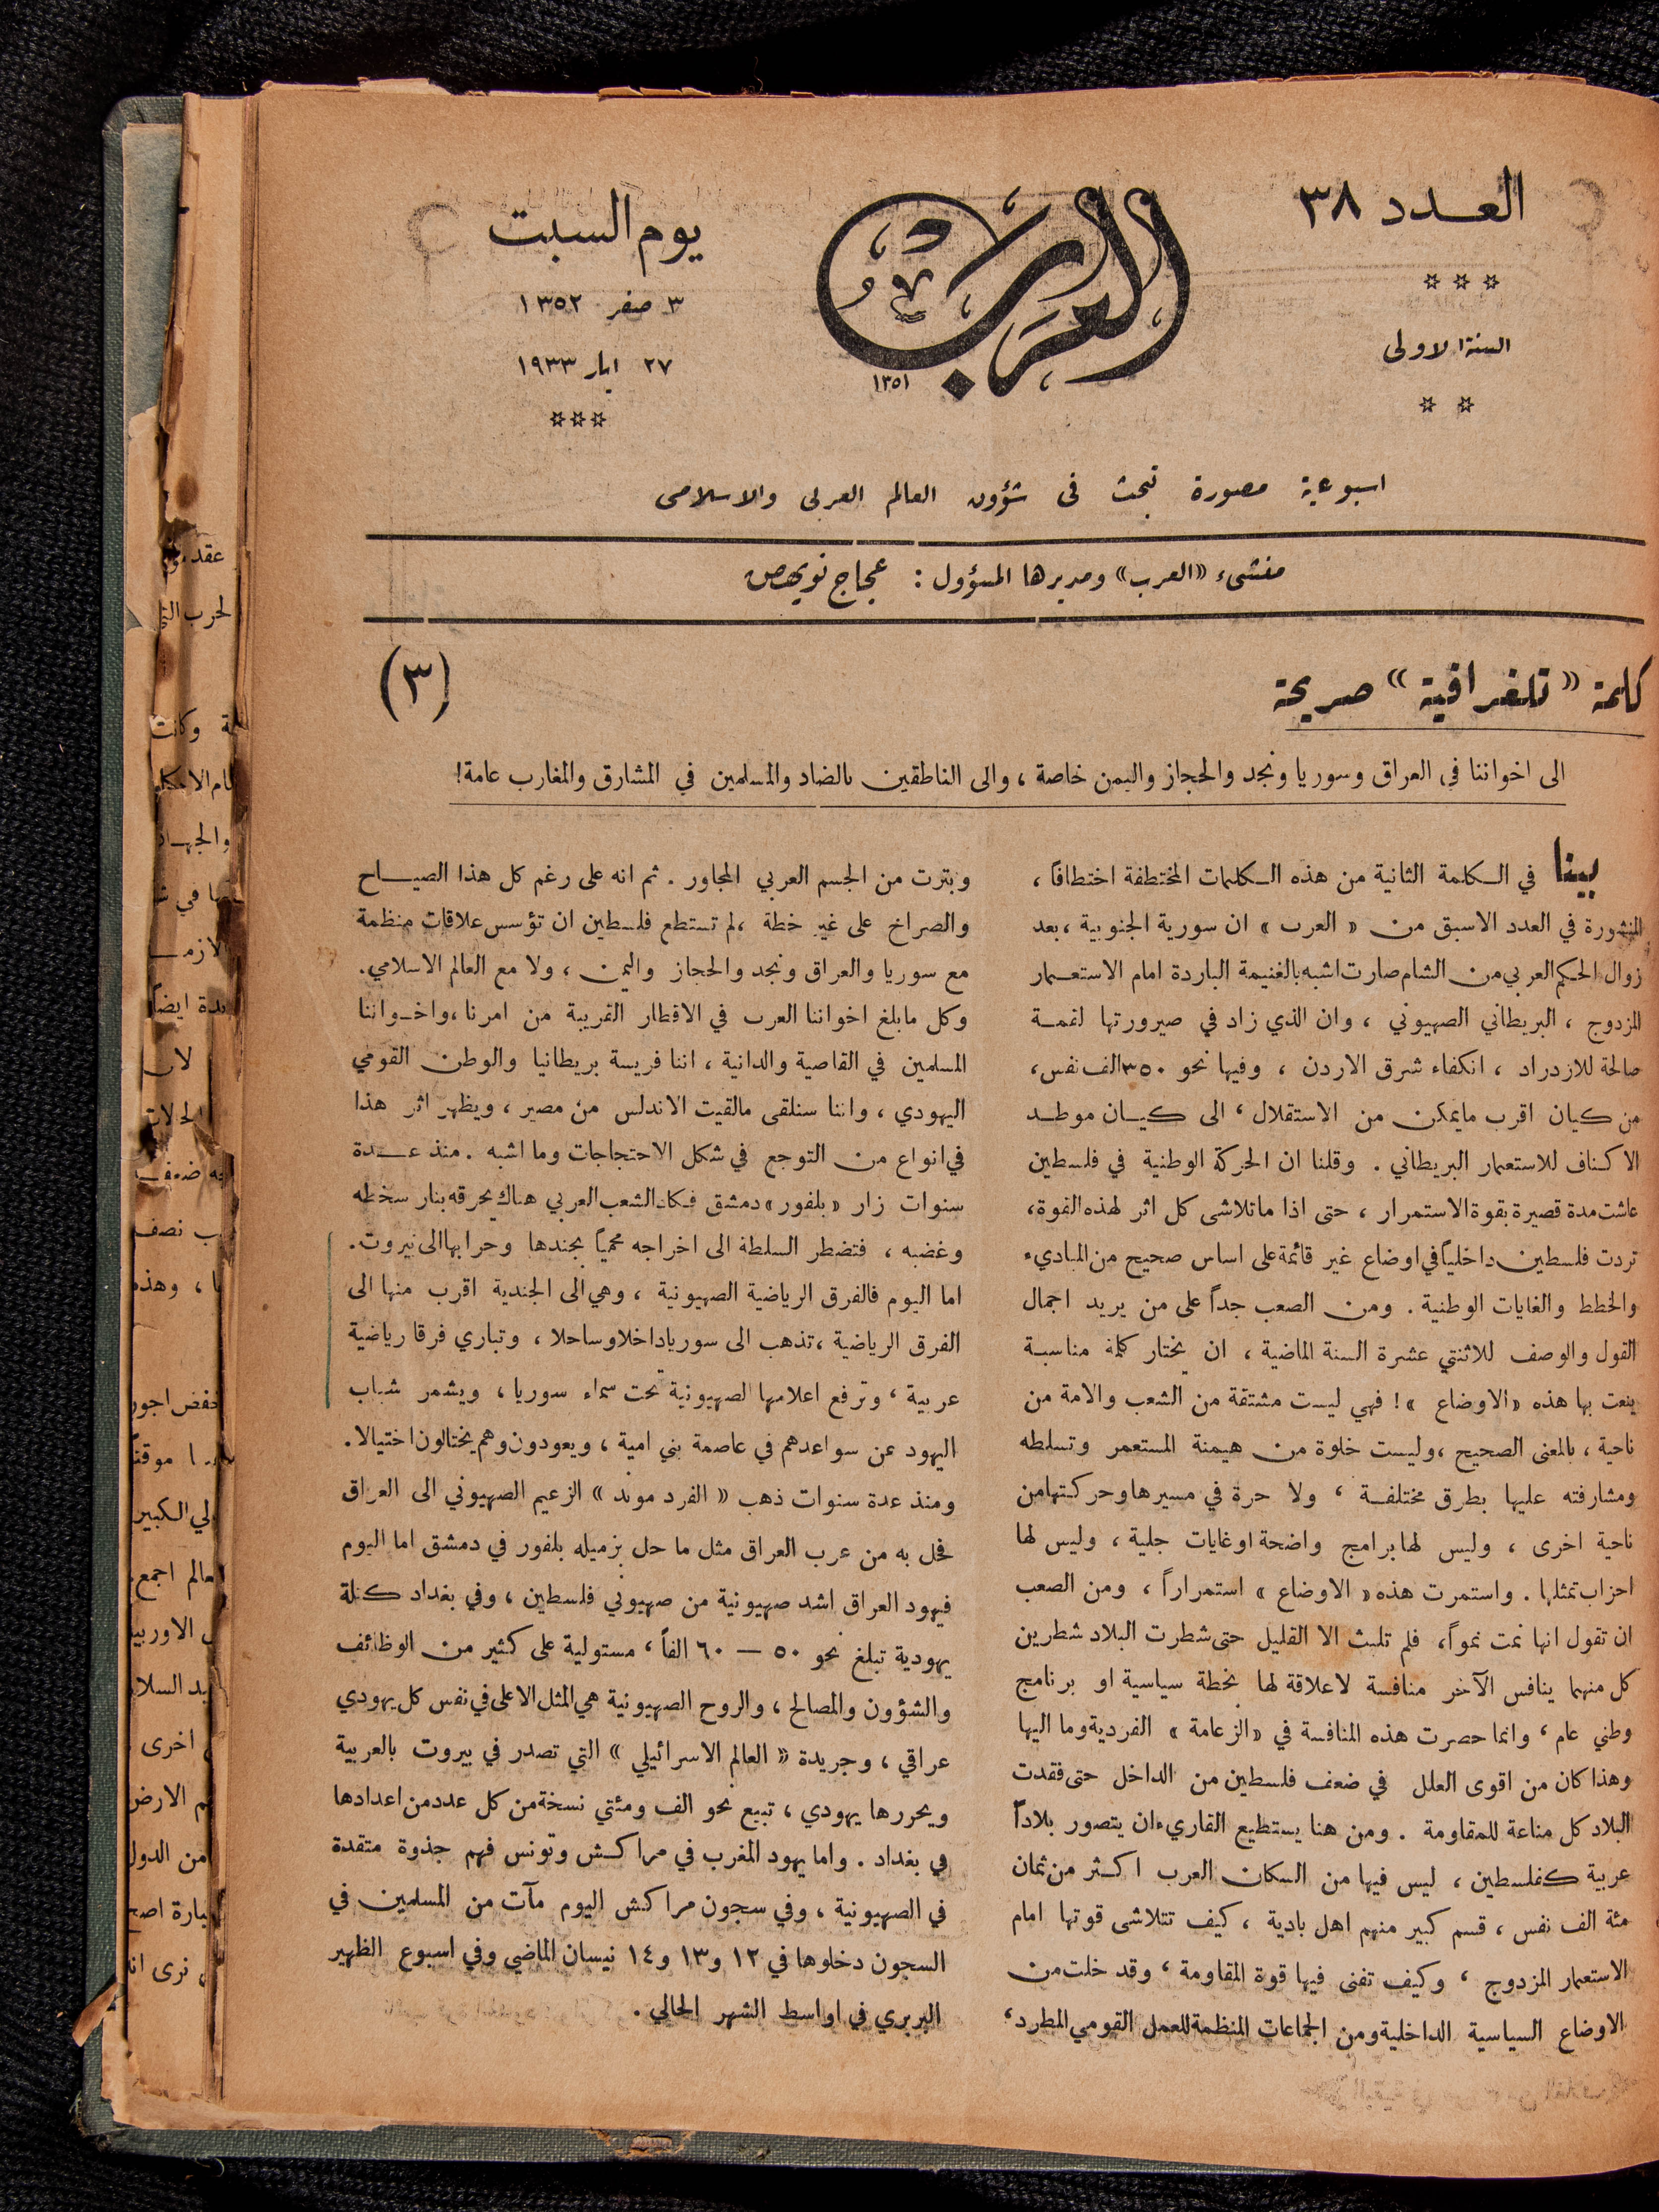 العدد ٣٨
السنة الاولى
العرب
١٣٥١
يوم السبت
٣ صفر ١٣٥٢
٢٧ ايار ١٩٣٣
اسبوعية مصورة تبحث فى شؤون العالم العربى والاسلامى
منشىء «العرب» ومديرها المسؤول : عجاج نويهض
كلمة «تلغرافية» صريحة
(٣)
الى اخواننا في العراق وسوريا ونجد والحجاز واليمن خاصة ، والى الناطقين بالضاد والمسلمين في المشارق والمغارب عامة!
بينا في الكلمة الثانية من هذه الكلمات المختطفة اختطافاً ،
المنشورة في العدد الاسبق من « العرب » ان سورية الجنوبية ، بعد
زوال الحكم العربي من الشام صارت اشبه بالغنيمة الباردة امام الاستعمار
المزدوج ، البريطاني الصهيوني ، وان الذي زاد في صيرورتها لقمة
صالحة للازدراد ، انكفاء شرق الاردن ، وفيها نحو ٣٥٠ الف نفس،
من كيان اقرب مايمكن من الاستقلال ، الى كيان موطد
الاكناف للاستعمار البريطاني . وقلنا ان الحركة الوطنية في فلسطين
عاشت مدة قصيرة بقوة الاستمرار ، حتى اذا ماتلاشى كل اثر لهذه القوة،
تردت فلسطين داخلياً في اوضاع غير قائمة على اساس صحيح من المبادىء
والخطط والغايات الوطنية . ومن الصعب جداً على من يريد اجمال
القول والوصف للاثنتي عشرة السنة الماضية ، ان يختار كلمة مناسبة
ينعت بها هذه «الاوضاع »! فهي ليست مشتقة من الشعب والامة من
ناحية ، بالمعنى الصحيح ، وليست خلوة من هيمنة المستعمر وتسلطه
ومشارفته عليها بطرق مختلفة ، ولا حرة في مسيرها وحركتها من
ناحية اخرى ، وليس لها برامج واضحة او غايات جلية ، وليس لها
احزاب تمثلها . واستمرت هذه « الاوضاع » استمراراً ، ومن الصعب
ان تقول انها نمت نمواً، فلم تلبث الا القليل حتى شطرت البلاد شطرين
كل منهما ينافس الآخر منافسة لاعلاقة لها بخطة سياسية او برنامج
وطني عام ، وانما حصرت هذه المنافسة في «الزعامة » الفردية وما اليها
وهذا كان من اقوى العلل في ضعف فلسطين من الداخل حتى فقدت
البلاد كل مناعة للمقاومة . ومن هنا يستطيع القارىء ان يتصور بلاداً
عربية كفلسطين ، ليس فيها من السكان العرب اكثر من ثمان
مئة الف نفس ، قسم كبير منهم اهل بادية ، كيف تتلاشى قوتها امام
الاستعمار المزدوج ، وكيف تفنى فيها قوة المقاومة ، وقد خلت من
الاوضاع السياسية الداخلية ومن الجماعات المنظمة للعمل القومي المطرد،
وبترت من الجسم العربي المجاور . ثم انه على رغم كل هذا الصياح
والصراخ على غير خطة ، لم تستطع فلسطين ان تؤسس علاقات منظمة
مع سوريا والعراق ونجد والحجاز واليمن ، ولا مع العالم الاسلامي.
وكل مابلغ اخواننا العرب في الاقطار القريبة من امرنا ، واخواننا
المسلمين في القاصية والدانية ، اننا فريسة بريطانيا والوطن القومي
اليهودي ، واننا سنلقى مالقيت الاندلس من مصير ، ويظهر اثر هذا
في انواع من التوجع في شكل الاحتجاجات وما اشبه . منذ عدة
سنوات زار « بلفور» دمشق فكاد الشعب العربي هناك يحرقه بنار سخطه
وغضبه ، فتضطر السلطة الى اخراجه محمياً بجندها وحرابها الى بيروت.
اما اليوم فالفرق الرياضية الصهيونية ، وهي الى الجندية اقرب منها الى
الفرق الرياضية ، تذهب الى سوريا داخلا وساحلا ، وتباري فرقا رياضية
عربية ، وترفع اعلامها الصهيونية تحت سماء سوريا ، ويشمر شباب
اليهود عن سواعدهم في عاصمة بني امية ، ويعودون وهم يختالون اختيالا.
ومنذ عدة سنوات ذهب « الفرد موند » الزعيم الصهيوني الى العراق
فحل به من عرب العراق مثل ما حل بزميله بلفور في دمشق اما اليوم
فيهود العراق اشد صهيونية من صهيوني فلسطين ، وفي بغداد كتلة
يهودية تبلغ نحو ٥٠ — ٦٠ الفاً ، مستولية على كثير من الوظائف
والشؤون والمصالح ، والروح الصهيونية هي المثل الاعلى في نفس كل يهودي
عراقي ، وجريدة « العالم الاسرائيلي » التي تصدر في بيروت بالعربية
ويحررها يهودي ، تبيع نحو الف ومئتي نسخة من كل عدد من اعدادها
في بغداد . واما يهود المغرب في مراكش وتونس فهم جذوة متقدة
في الصهيونية ، وفي سجون مراكش اليوم مآت من المسلمين في
السجون دخلوها في ١٢ و١٣ و١٤ نيسان الماضي وفي اسبوع الظهير
البربري في اواسط الشهر الحالي .